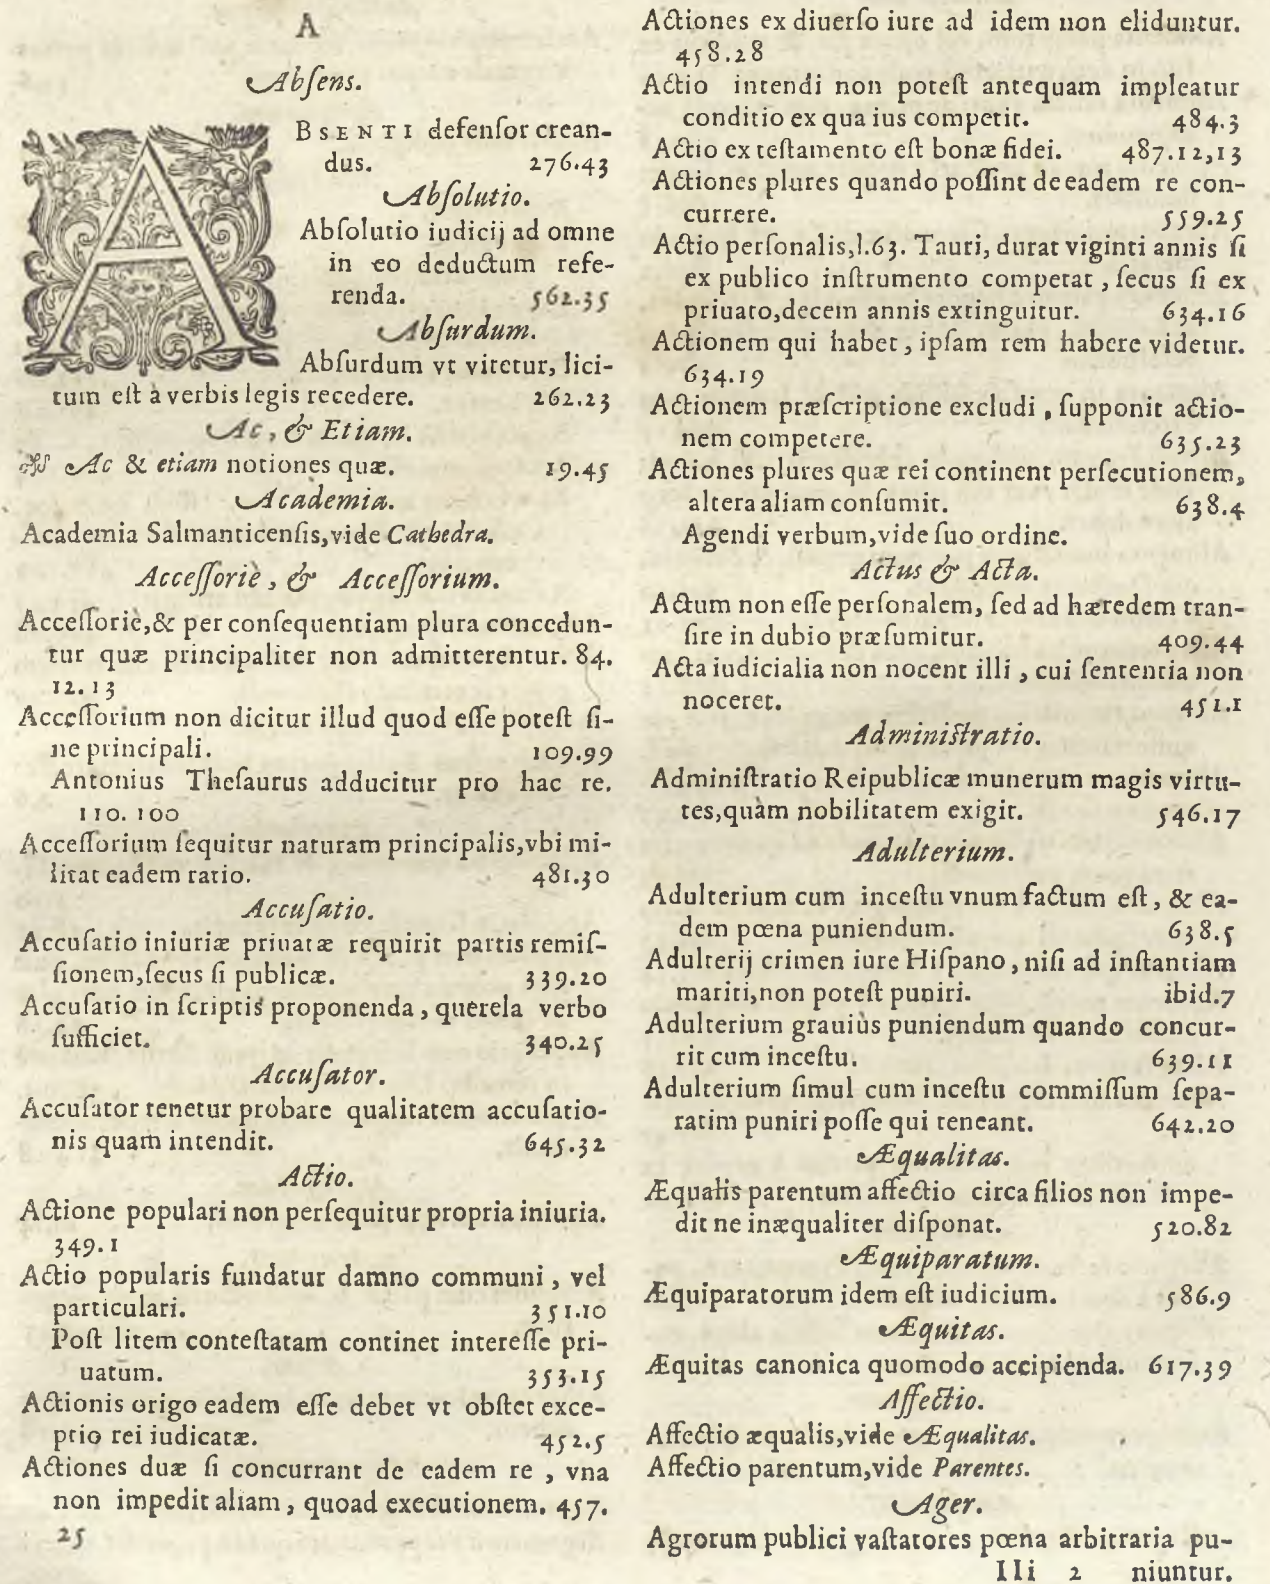 A
Abſens.
ABSENTI defenſor crean-
dus. 276.43
Abſolutio.
Abſolutio iudicij ad omne
in eo deductum refe-
renda. 562.35
Abſurdum.
Abſurdum vt vitetur, lici-
tum eſt à verbis legis recedere. 262.23
Ac, & Etiam.
Ac & etiam notiones quæ. 19.45
Academia.
Academia Salmanticenſis, vide Cathedra.
Acceſſoriè, & Acceſſorium.
Acceſſoriè, & per conſequentiam plura concedun-
tur quæ principaliter non admitterentur. 84.
12.13
Acceſſorium non dicitur illud quod eſſe poteſt ſi-
ne principali. 109.99
Antonius Theſaurus adducitur pro hac re.
110. 100
Acceſſorium ſequitur naturam principalis, vbi mi-
litat eadem ratio. 481.30
Accuſatio.
Accuſatio iniuriæ priuatæ requirit partis remiſ-
ſionem, ſecus ſi publicæ. 339.20
Accuſatio in ſcriptis proponenda, querela verbo
ſufficiet. 340.25
Accuſator.
Accuſator tenetur probare qualitatem accuſatio-
nis quam intendit. 645.32
Actio.
Actione populari non perſequitur propria iniuria.
349.1
Actio popularis fundatur damno communi, vel
particulari. 351.10
Poſt litem conteſtatam continet intereſſe pri-
uatum. 353.15
Actionis origo eadem eſſe debet vt obſtet exce-
ptio rei iudicatæ. 452.5
Actiones duæ ſi concurrant de eadem re, vna
non impedit aliam, quoad executionem. 457.
25
Actiones ex diuerſo iure ad idem non eliduntur.
458.28
Actio intendi non poteſt antequam impleatur
conditio ex qua ius competit. 484.3
Actio ex teſtamento eſt bonæ fidei. 487.12,13
Actiones plures quando poſſint de eadem re con-
currere. 559.25
Actio perſonalis, l.63. Tauri, durat viginti annis ſi
ex publico inſtrumento competat, ſecus ſi ex
priuato, decem annis extinguitur. 634.16
Actionem qui habet, ipſam rem habere videtur.
634.19
Actionem præſcriptione excludi, ſupponit actio-
nem competere. 635.23
Actiones plures quæ rei continent perſecutionem,
altera aliam conſumit. 638.4
Agendi verbum, vide ſuo ordine.
Actus & Acta.
Actum non eſſe perſonalem, ſed ad hæredem tran-
ſire in dubio præſumitur. 409.44
Acta iudicialia non nocent illi, cui ſententia non
noceret. 451.1
Adminiſtratio.
Adminiſtratio Reipublicæ munerum magis virtu-
tes, quàm nobilitatem exigit. 546.17
Adulterium.
Adulterium cum inceſtu vnum factum eſt, & ea-
dem pœna puniendum. 638.5
Adulterij crimen iure Hiſpano, niſi ad inſtantiam
mariti, non poteſt puniri. ibid.7
Adulterium grauiùs puniendum quando concur-
rit cum inceſtu. 639.11
Adulterium ſimul cum inceſtu commiſſum ſepa-
ratim puniri poſſe qui teneant. 642.20
Æqualitas.
Æqualis parentum affectio circa filios non impe-
dit ne inæqualiter diſponat. 520.82
Æquiparatum.
Æquiparatorum idem eſt iudicium. 586.9
Æquitas.
Æquitas canonica quomodo accipienda. 617.39
Affectio.
Affectio æqualis, vide Æqualitas.
Affectio parentum, vide Parentes.
Ager.
Agrorum publici vaſtatores pœna arbitraria pu-
IIi 2 niuntur.